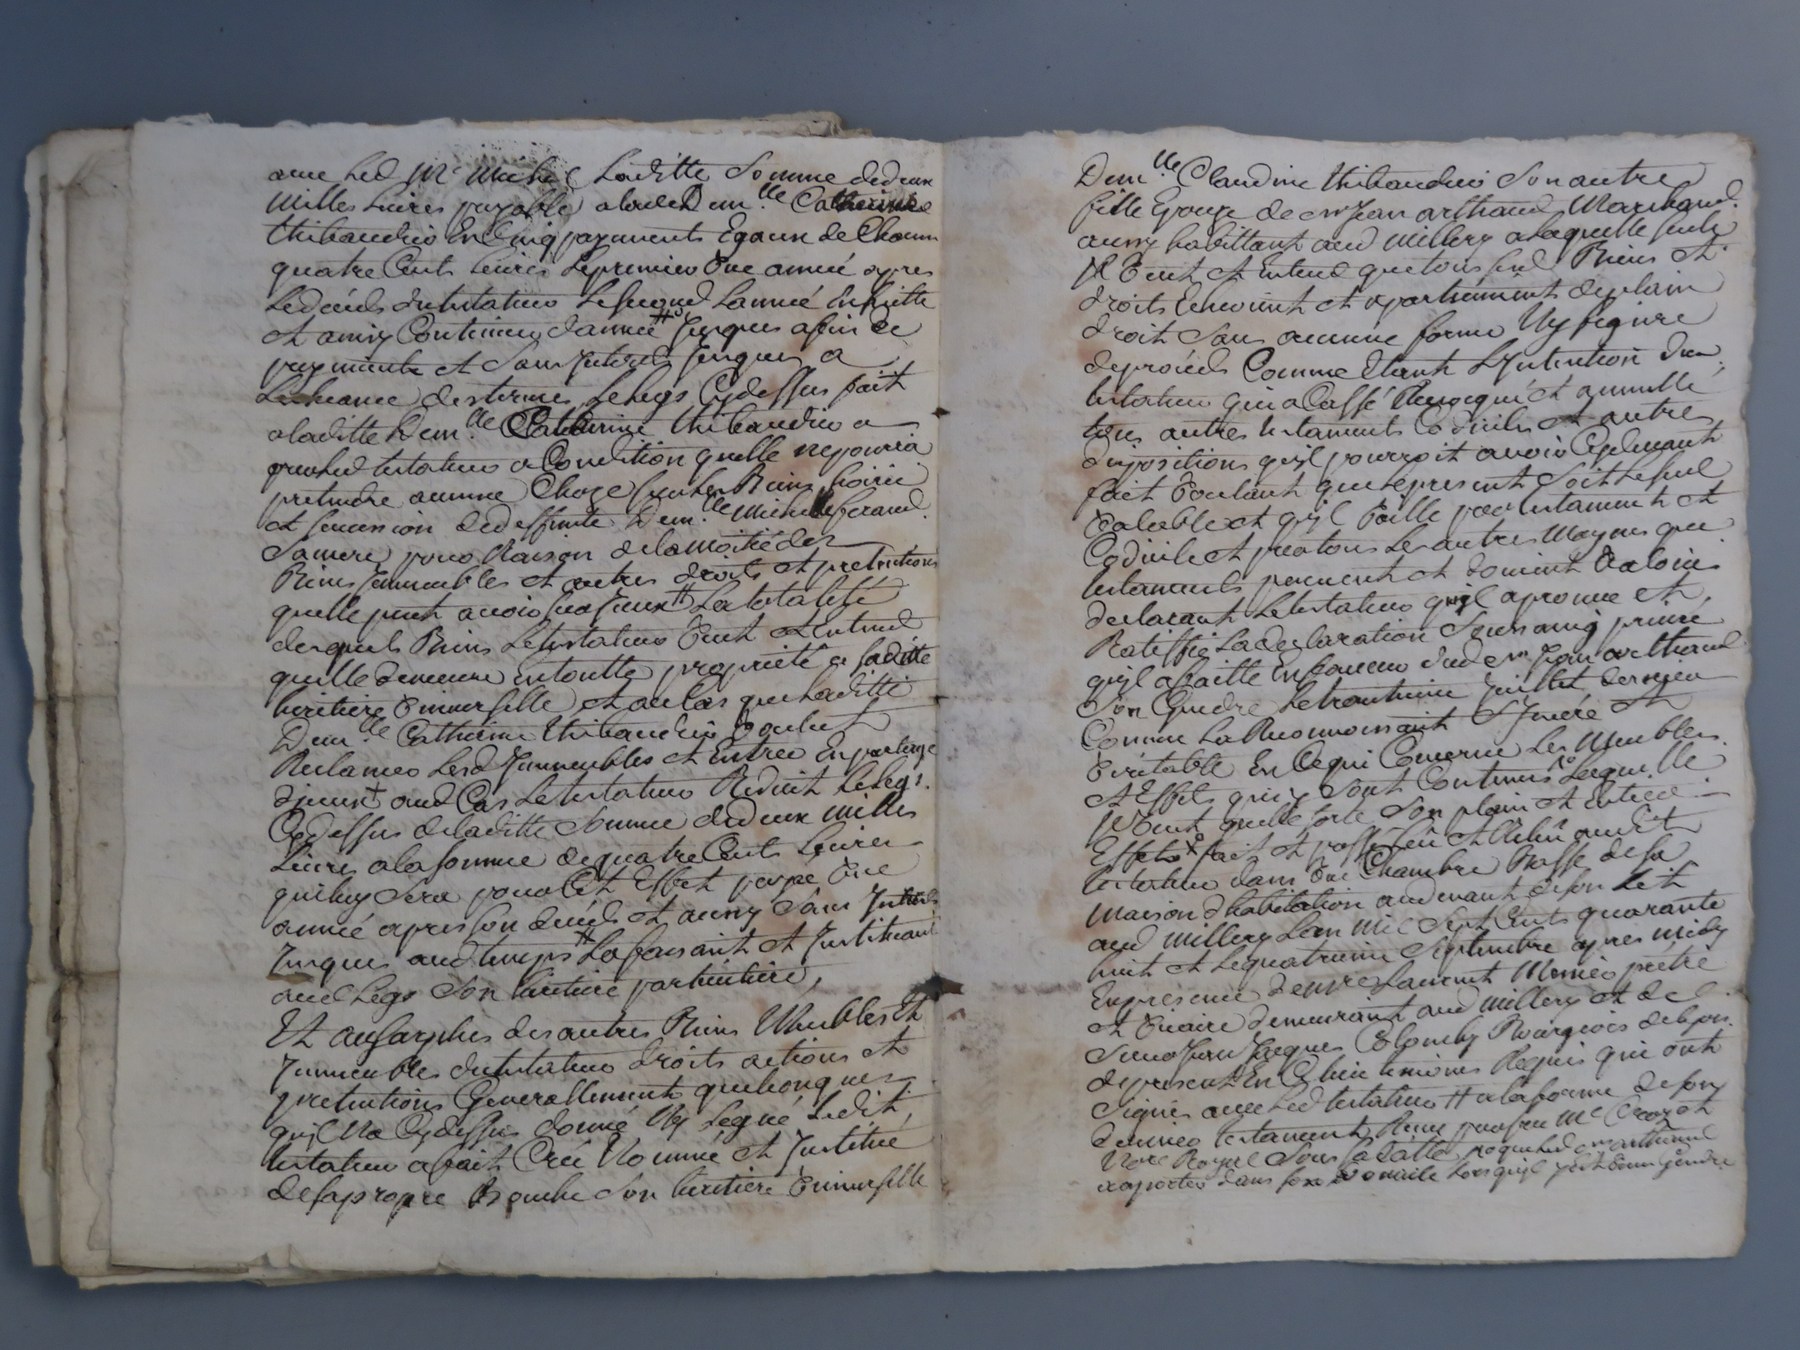 avec led Mr Michel Laditte Somme dedeux
milles Livres payable aladte Demlle Catherine
thibaudier En Cinq payements Egaux de Chacun
quatre Cents livres Lepremier Une année apres
Ledécés dutestateur Lesecond Lannée Ensuitte
Et ainsy Continuer dannée Jusques afin de
payments et Sans Jnterets Jusques a
Lecheance destermes, Lelegs Cydessus fait
aladitte Demlle Catherine thibaudier a
testateur a Condition quelle nepourra
pretendre aucune Choze surles Biens hoirie
et sucession dedeffunte Demlle Michelle ferand
Samere pour Raison delamoitié des
Biens Jmmeubles et autres droits et pretentions
quelle peut avoir Latotalité
desquels Biens Letestateur Veut et Entend
quelle demeure Entoutte propriété a saditte
heritiere Universelle et aucas que laditte
Demlle Catherine thibaudier Voulut
Reclamer Lesd Jmmeubles et Entrer En partage
diceux aud Cas Letestateur Reduit lelegs
Cydessus deladitte Somme dedeux milles
Livres alasomme dequatre Cents Livres
quiluy Sera pour Cet Effet payée Une
année apres son décés et aussy Sans Jnterets
Jusques aud temps Lafaisant et Jnstituant
aud Legs Son heritiere particuliere,
Et ausurplus des autres Biens Meubles Et
Jmmeubles dutestateur droits actions et
pretentions Generallement quelconques
quil Na Cydessus donné Ny Legué Ledit
testateur afait Créé Nommé et Jnstitué
desapropre Bouche Son heritiere Universelle
Demlle Claudine thibaudier Son autre
fille Epouze de sr Jean arthaud Marchand
aussy habittant aud Millery alaquelle seule
Jl Veut et Entend quetous sesd Biens et
droits Reviennent et apartiennent deplain
droit Sans aucune forme Ny figure
deprocés Comme Etant LJntention dud
testateur qui a Cassé Revocqué et annullé
tous autres testaments Codiciles et autres
dispositions quil pourroit avoir Cydevant
fait Voulant que lepresent Soit leseul
Valable et quil Vaille par testament et
Codicile et partous Les autres Moyens que
testaments peuvent et doivent Valoir
declarant Letestateur quil aprouve et
Ratiffie La declaration Soussaing privé
quil afaitte Enfaveur dud sr Jean arthaud
Son Gendre Letrantieme Juillet dernier
Comme La Reconnoissant Sincere et
Veritable En Cequi Concerne Les Meubles
et Effets qui y Sont Contenus Laquelle
Jl Veut quelle sorte Son plain et Entier
Effets fait et passé Leu et Relû audit
testateur dans Une Chambre Basse desa
maison d'habitation audevant deson lit
aud millery Lan mil Sept Cents quarante
huit et lequatrieme Septembre apres midy
Enpresence de Laurent prêtre
et Vicaire demeurant aud millery et de
Sieur Jean Jacques Colomby Bourgeois delyon
depresent En Ce lieu temoins Requis qui ont
Signés avec led testateur alaforme deson
dernier testament Reçu parseu Me Crozet
Nore Royal Sous Sadatte
dans son domicile Lorsquil